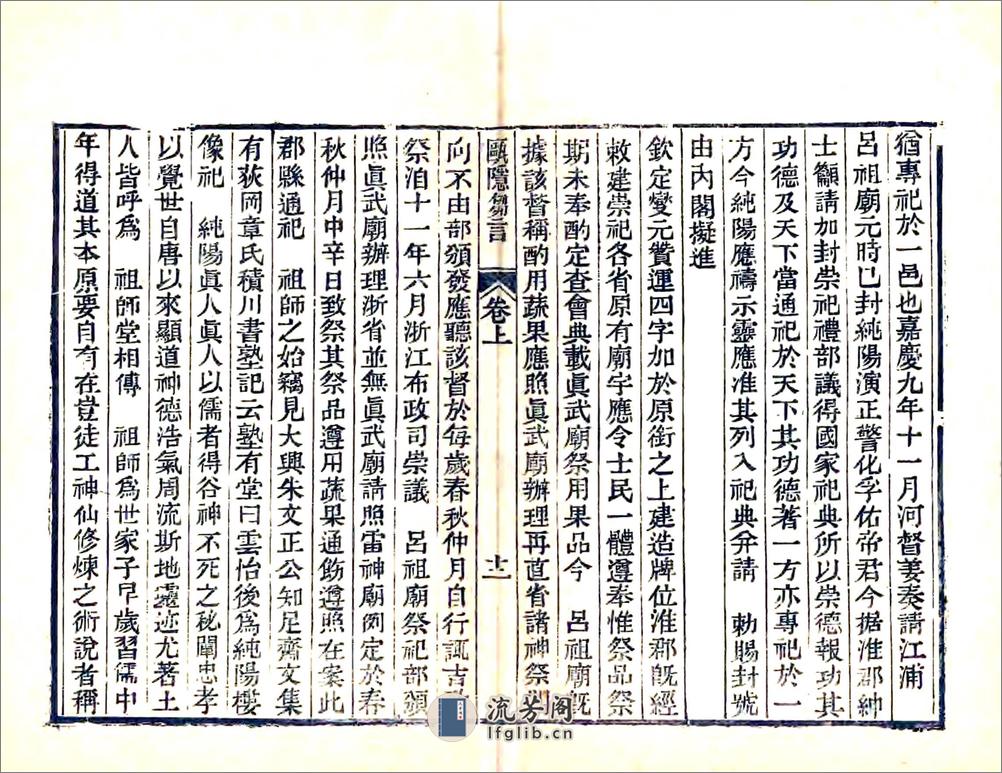 猶專祀於一邑也嘉慶九年十一月河督姜奏請江浦
呂祖廟元時已封純陽演正警化孚佑帝君今据淮郡紳
士籲請加封崇祀禮部議得國家祀典所以崇德報功其
功德及天下當通祀於天下其功德著一方亦專祀於一
方今純陽應禱示靈應准其列入祀典并請 勅賜封號
由内閣擬進
欽定燮元贊運四字加於原銜之上建造牌位淮郡既經
敕建崇祀各省原有廟宇應令士民一體遵奉惟祭品祭
期未奉酌定查會典載眞武廟祭用果品今 呂祖廟既
據該督稱酌用蔬果應照眞武廟辦理再直省諸神祭期
甌隱芻言 卷上 十二
向不由部頒發應聽該督於每歲春秋仲月自行諏吉致
祭洎十一年六月浙江布政司崇議 呂祖廟祭祀部頒
照眞武廟辦理浙省並無眞武廟請照雷神廟例定於春
秋仲月中辛日致祭其祭品遵用蔬果通飭遵照在案此
郡縣通祀 祖師之始竊見大興朱文正公知足齋文集
有荻岡章氏積川書塾記云塾有堂曰雲怡後爲純陽樓
像祀 純陽眞人眞人以儒者得谷神不死之秘闡忠孝
以覺世自唐以來顯道神德浩氣周流斯地靈迹尤著土
人皆呼爲 祖師堂相傳 祖師爲世家子早歲習儒中
年得道其本原要自有在豈徒工神仙修煉之術說者稱
流芳阁
lfglib.cn